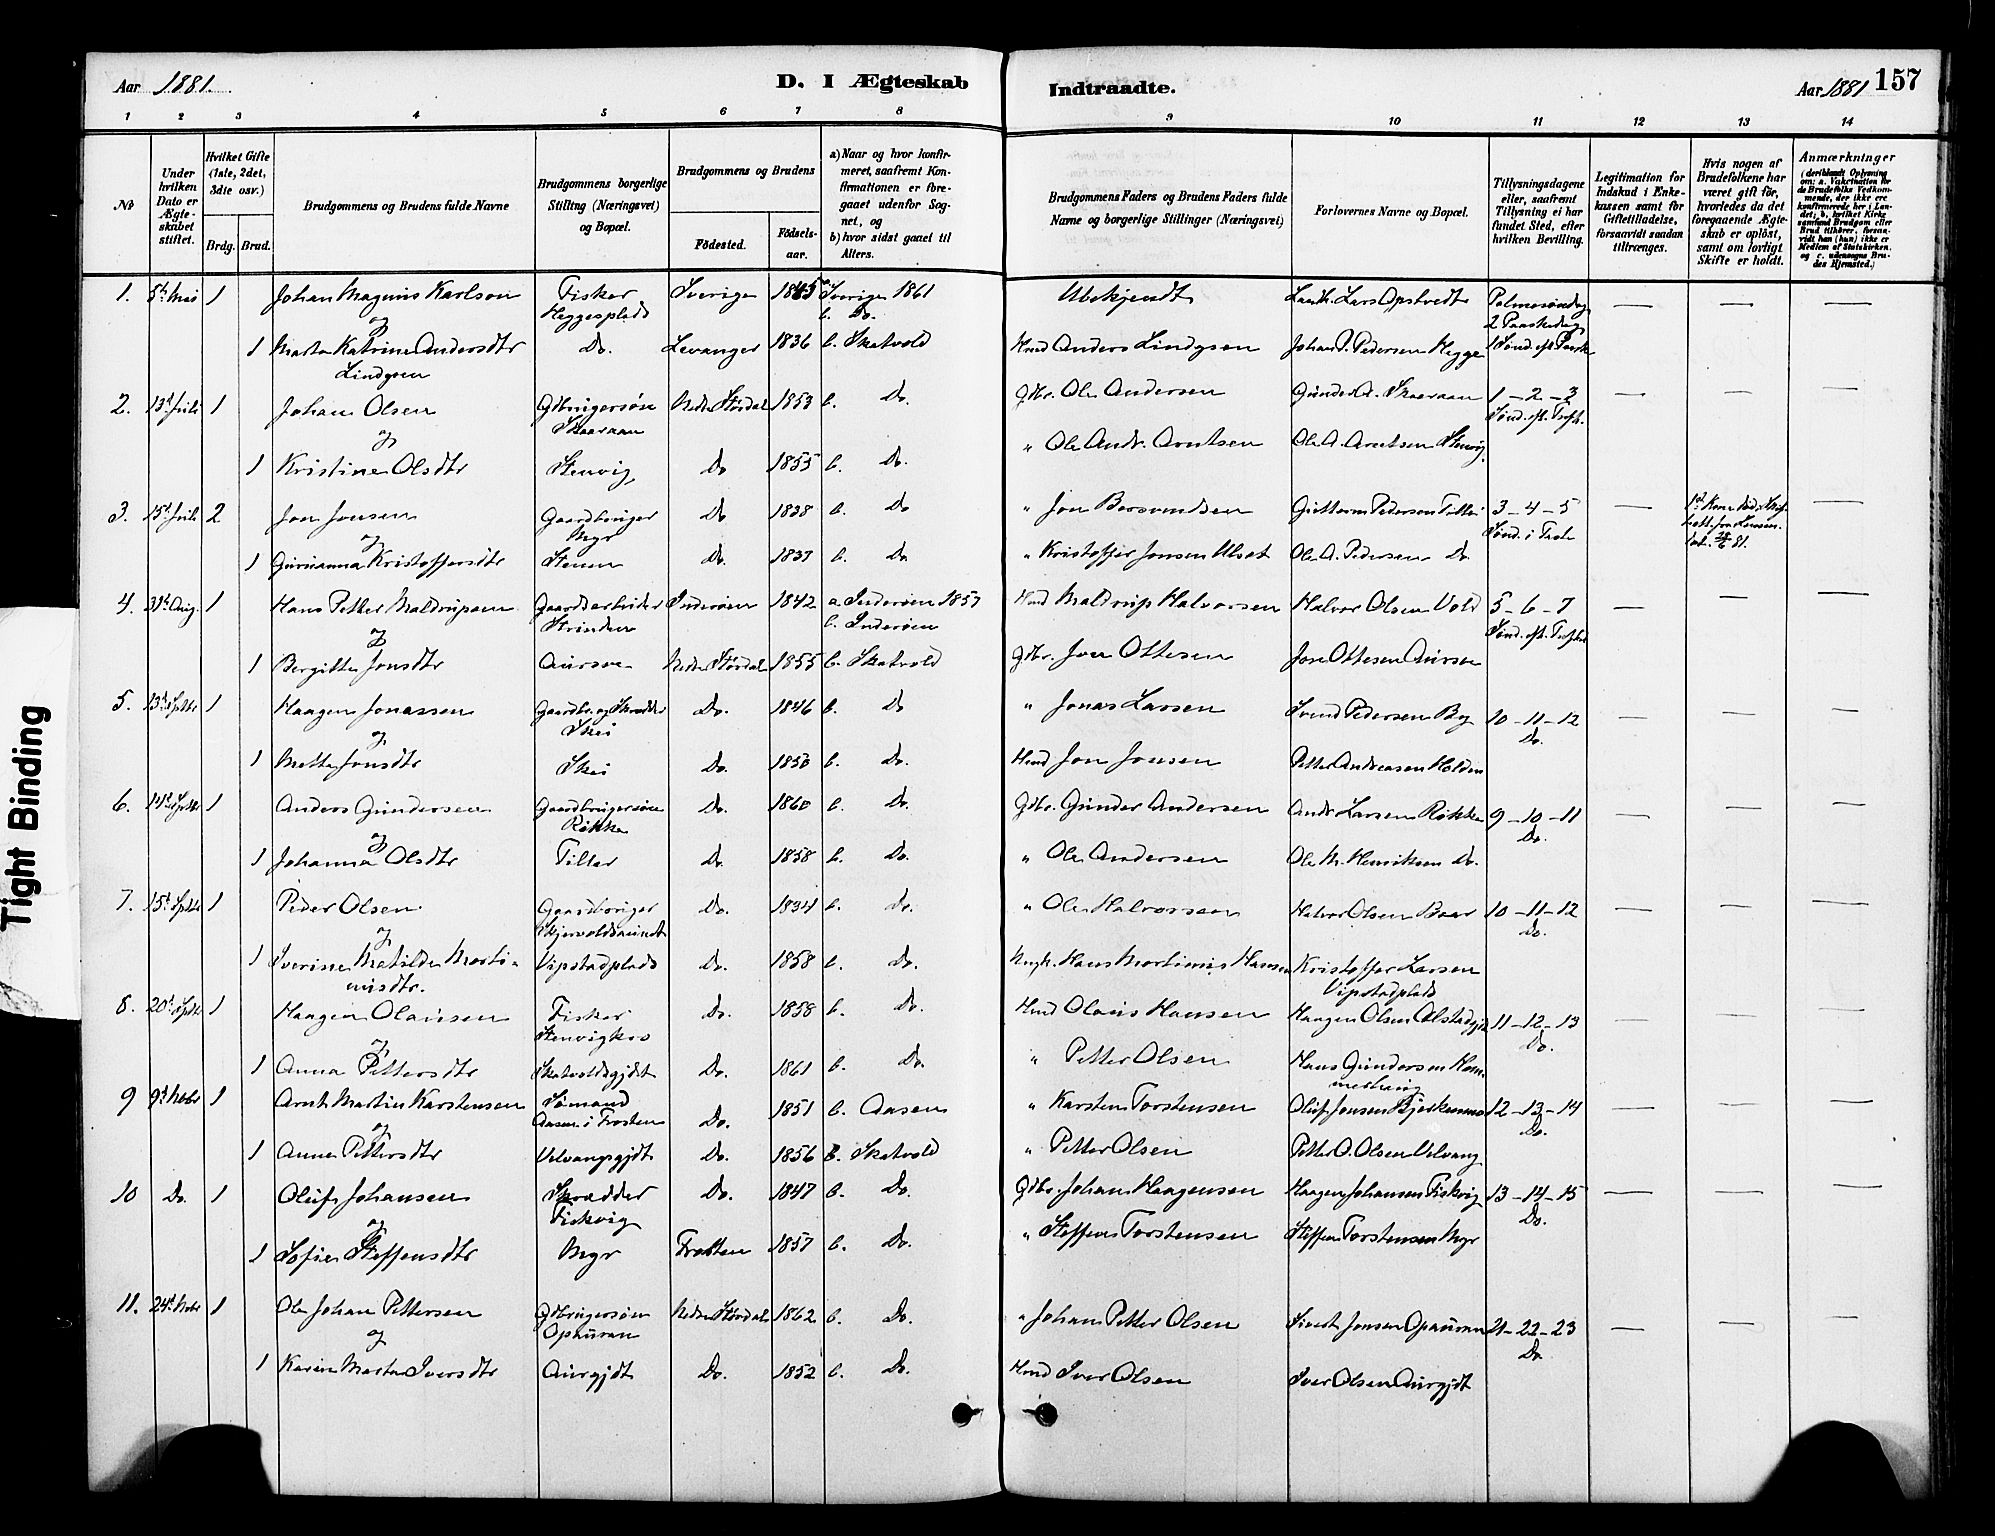 Aar 1881. D. I Ægteskab Indtraadte. Aar 1881 157
1 2 3 4 5 6 7 8 9 10 11 12 13 14
No
Under hvilken Dato er Ægteskabet stiftet.
Hvilket Gifte (1ste, 2det, 3dte osv.)
Brdg. Brud.
Brudgommens og Brudens fulde Navne
Brudgommens borgerlige Stilling (Næringsvei) og Bopæl.
Brudgommens og Brudens
Födested. Födselsaar.
a) Naar og hvor konfirmeret, saafremt Konfirmationen er foregaaet udenfor Sognet, og
b) hvor sidst gaaet til Alters.
Brudgommens Faders og Brudens Faders fulde Navne og borgerlige Stillinger (Næringsvei)
Forlovernes Navne og Bopæl.
Tillysningsdagene eller, saafremt Tillysning ei har fundet Sted, efter hvilken Bevilling.
Legitimation for Indskud i Enkekassen samt for Giftetilladelse, forsaavidt saadan tiltrænges.
Hvis nogen af Brudefolkene har været gift för, hvorledes da det foregaaende Ægteskab er oplöst, samt om lovligt Skifte er holdt.
Anmærkninger
1. 5t Mai 1 Johan Magnus Karlson Fisker Sverige 1845 Sverige 1861 Ubekjendt Lars Opstvedt Palmesöndag —
og Heggesplads b. Do. 2 Paaskedag
1 Marta Katrine Andersdtr Do. Levanger 1836 b. Skatvold Hmd Anders Lindgsen Johan P. Pedersen Hegge 1 Sönd. eft. Paaske
Lindgsen
2. 13d Juli 1 Johan Olsen Gdbrugersøn Nedre Størdal 1853 b. Do. Gdbr. Ole Andersen Gunder A. Skaeraan 1 - 2 - 3 —
og Skaeraan Sønd. eft. Trefh.
1 Kristine Olsdtr Stenvig Do 1855 b. Do. " Ole Andr. Arntsen Ole A. Arntsen Stenvig
3. 15d Juli 2 Jon Jonsen Gaardbruger Do 1838 b. Do " Jon Guttorm Pedersen 3 - 4 - 5 —
og Myr Sønd. i Trefh.
1 Gurianna Kristoffersdtr Do. 1837 b. Do " Kristoffer Jonsen Ulvet Ole A. Pedersen Do
4. 31t Aug. 1 Hans Petter Maldrupsen Gaardsarbeider Inderøen 1842 a Inderøen 1857 Hmd Maldrup Halvorsen Halvor Olsen Vold 5 - 6 - 7 —
og Strinden b. Inderøen
1 Bergitte Jonsdtr Aursoe Nedre Størdal 1855 b. Skatvold Gdbr. Jon Ottesen Jon Ottesen Aursoe
5. 13d Septbr 1 Haagen Jonassen Gaardbr. og Skrædder Do. 1846 b. Do " Jonas Lassen Svend Pedersen By 10 - 11 - 12 —
og Skei Do.
1 Mette Jonsdtr Skei Do. 1850 b. Do. Hmd Jon Jonsen Petter Andreasen Holden
6. 14d Septbr 1 Anders Gundersen Gaardbrugersøn Do. 1860 b. Do. Gdbr. Gunder Andersen Andr. Larsen Røkke 9 - 10 - 11 —
og Røkke Do.
1 Johanna Olsdtr Tiller Do. 1858 b. Do. " Ole Andersen Ole M. Henriksen Do.
7. 15d Septbr 1 Peder Olsen Gaardbruger Do. 1834 b. Do. " Ole Halvorsen Halvor Olsen Baar 10 - 11 - 12 —
og Do.
1 Severine Matilde Marti- Vipstadplads Do. 1858 b. Do. Hans Martinus Hansen Kristoffer Larsen
nusdtr. Vipstadplads
8. 20d Septbr 1 Haagen Olausen Fisker Do. 1858 b. Do. Hmd Olaus Hansen Haagen Olsen Alstadgjdt 11 - 12 - 13 —
og Do.
1 Anna Pettersdtr Skatvoldsgjdt Do. 1861 b. Do. " Petter Olsen Hans Gundersen Ham-
9 9d Nobr 1 Arnt Martin Karstensen Sømand Do. 1851 b. Aasen " Karsten Torstensen Oluf Jonsen 12 - 13 - 14 —
og Aasen i Frosten Do.
1 Anne Pettersdtr Velvangsgjdt Do. 1856 b. Skatvold " Petter Olsen Petter O. Olsen Velvang
10 Do. 1 Oluf Johansen Skrædder Do. 1847 b. Do. Gdbr. Johan Haagensen Haagen Johansen Fiskvig 13 - 14 - 15 —
og Fiskvig Do.
1 Sofie Steffensdtr Myr Frosten 1857 b. Do. " Steffen Torstensen Steffen Torstensen Myr
11. 24d Nobr 1 Ole Johan Pettersen Gdbrugersøn Nedre Størdal 1862 b. Do. " Johan Petter Olsen Sivert Jonsen Opauran 21 - 22 - 23 —
og Opauran Do.
1 Karen Marta Iversdtr Aurgjdt Do. 1852 b. Do. Hmd Iver Olsen Iver Olsen Aurgjdt
Tight Binding